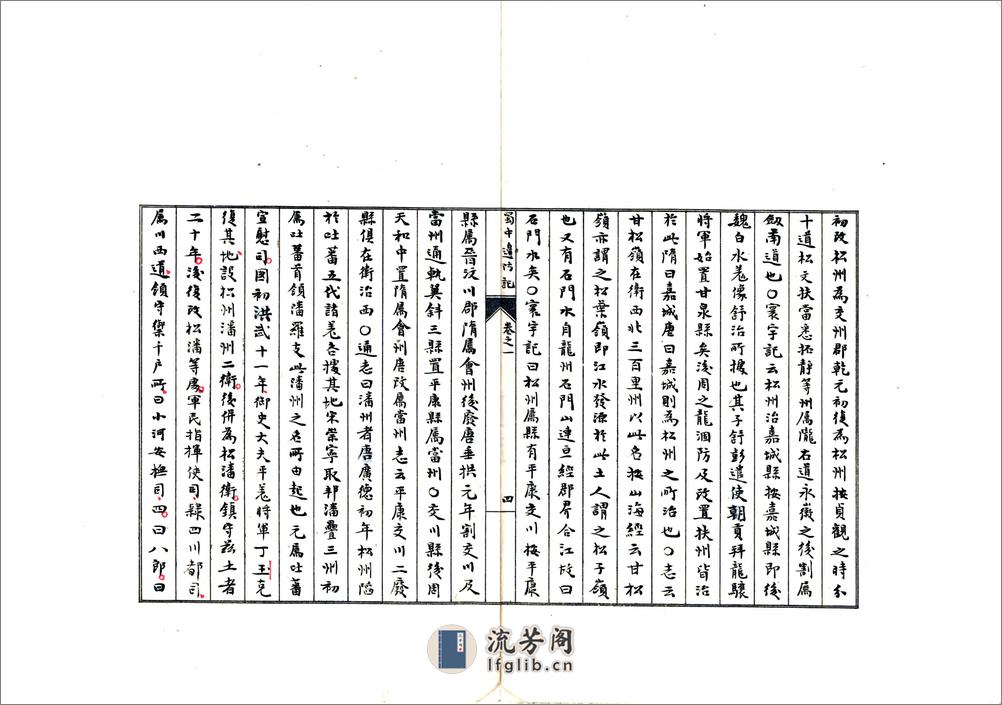 初改松州為交川郡乾元初復為松州按貞觀之時分
十道松文扶當悉拓靜等州属隴右道永徽之後割属
劔南道也〇寰宇記云松州治嘉城縣按嘉城縣即後
魏白水羌像舒治所據也其子舒彭遣使朝貢拜龍驤
將軍始置甘泉縣矣後周之龍涸防及改置扶州皆治
於此隋曰嘉城唐曰嘉城則為松州之所治也〇志云
甘松嶺在衛西北三百里州以此名按山海經云甘松
嶺亦謂之松葉嶺即江水發源於此土人謂之松子嶺
也又有石門水自龍州石門山連亘經郡界合江故曰
石門水矣〇寰宇記曰松州属縣有平康交川按平康
蜀中邊防記
卷之一
四
縣属晉汶川郡隋属會州後廢唐垂拱元年割交川及
當州通軌翼斜三縣置平康縣属當州〇交川縣後周
天和中置隋属會州唐改属當州志云平康交川二廢
縣俱在衛治西〇通志曰潘州者唐廣德初年松州陷
於吐蕃五代諸羌各據其地宋崇寧取邦潘疊三州初
属吐蕃首領潘羅支此潘州之名所由起也元属吐蕃
宣慰司國初洪武十一年御史大夫平羌將軍丁玉克
復其地設松州潘州二衛後併為松潘衛鎮守茲土者
二十年後復改松潘等處軍民指揮使司縣四川都司
属川西道領守禦千户所曰小河安撫司四曰八郎曰
流芳阁
lfglib.cn